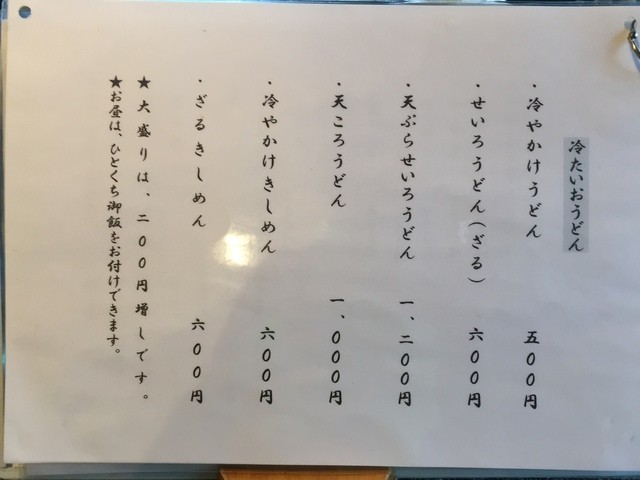 冷たいおうどん
・冷やかけうどん 五００円
・せいろうどん（ざる） 六００円
・天ぷらせいろうどん 一、二００円
・天ころうどん 一、０００円
・冷やかけきしめん 六００円
・ざるきしめん 六００円
★大盛りは、二００円増しです。
★お昼は、ひとくち御飯をお付けできます。